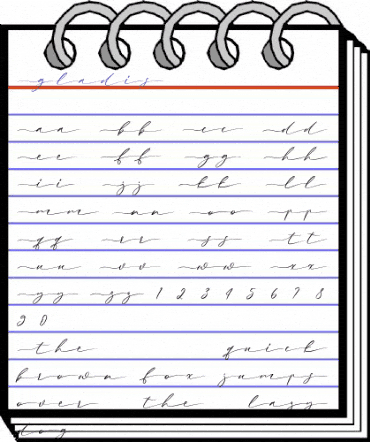 gladis
aa bb cc dd
ee ff gg hh
ii jj kk ll
mm nn oo pp
qq rr ss tt
uu vv ww xx
yy zz 1 2 3 4 5 6 7 8
9 0
the quick
brown fox jumps
over the lazy
dog